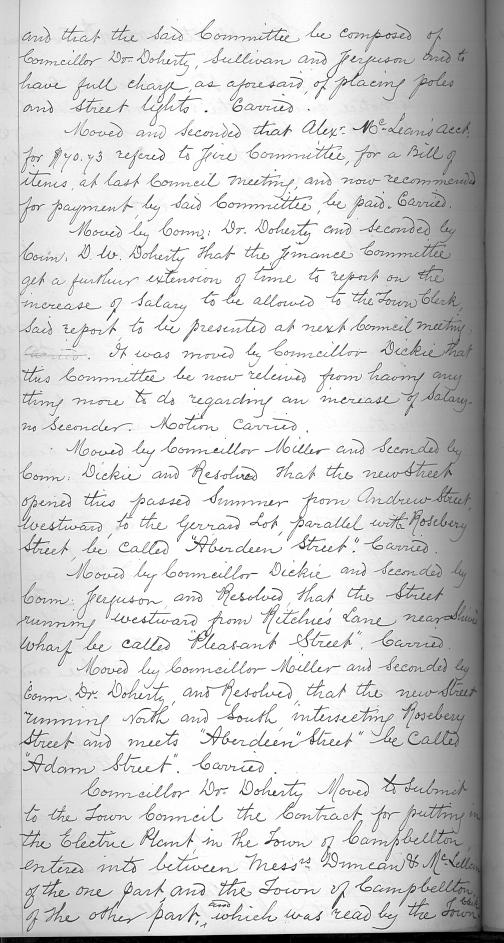 and that the said Committee be composed of
Councillor Dr. Doherty, Sullivan and Ferguson and to
have full charge, as aforesaid, of placing poles
and street lights. Carried.
Moved and Seconded that Alexr. McLean's acct.
for $70.73 refered to Fire Committee, for a Bill of
items, at last Council meeting, and now recommended
for payment, by said Committee, be paid. Carried.
Moved by Coun: Dr. Doherty and Seconded by
Coun. D. W. Doherty that the Finance Committee
get a further extension of time to report on the
increase of Salary to be allowed to the Town Clerk,
said report to be presented at next Council meeting.
It was moved by Councillor Dickie that
this Committee be now releived from having any
thing more to do regarding an increase of Salary.
no Seconder. Motion Carried.
Moved by Councillor Miller and Seconded by
Coun: Dickie and Resolved that the new Street
opened this passed Summer from Andrew Street,
westward, to the Gerrard Lot, parallel with Rosebery
Street, be called "Aberdeen Street". Carried.
Moved by Councillor Dickie and Seconded by
Coun: Ferguson, and Resolved that the Street
running westward from Ritchie's Lane near
Wharf be called "Pleasant Street". Carried.
Moved by Councillor Miller and Seconded by
Coun. Dr. Doherty, and Resolved that the new Street
running North and South, intersecting Rosebery
Street and meets "Aberdeen" Street" be called
"Adam Street". Carried
Councillor Dr. Doherty Moved to Submit
to the Town Council the Contract for putting in
the Electric Plant in the Town of Campbellton
entered into between Messrs Duncan & McLellan
of the one part, and the Town of Campbellton,
of the other part, and which was read by the Town Clerk